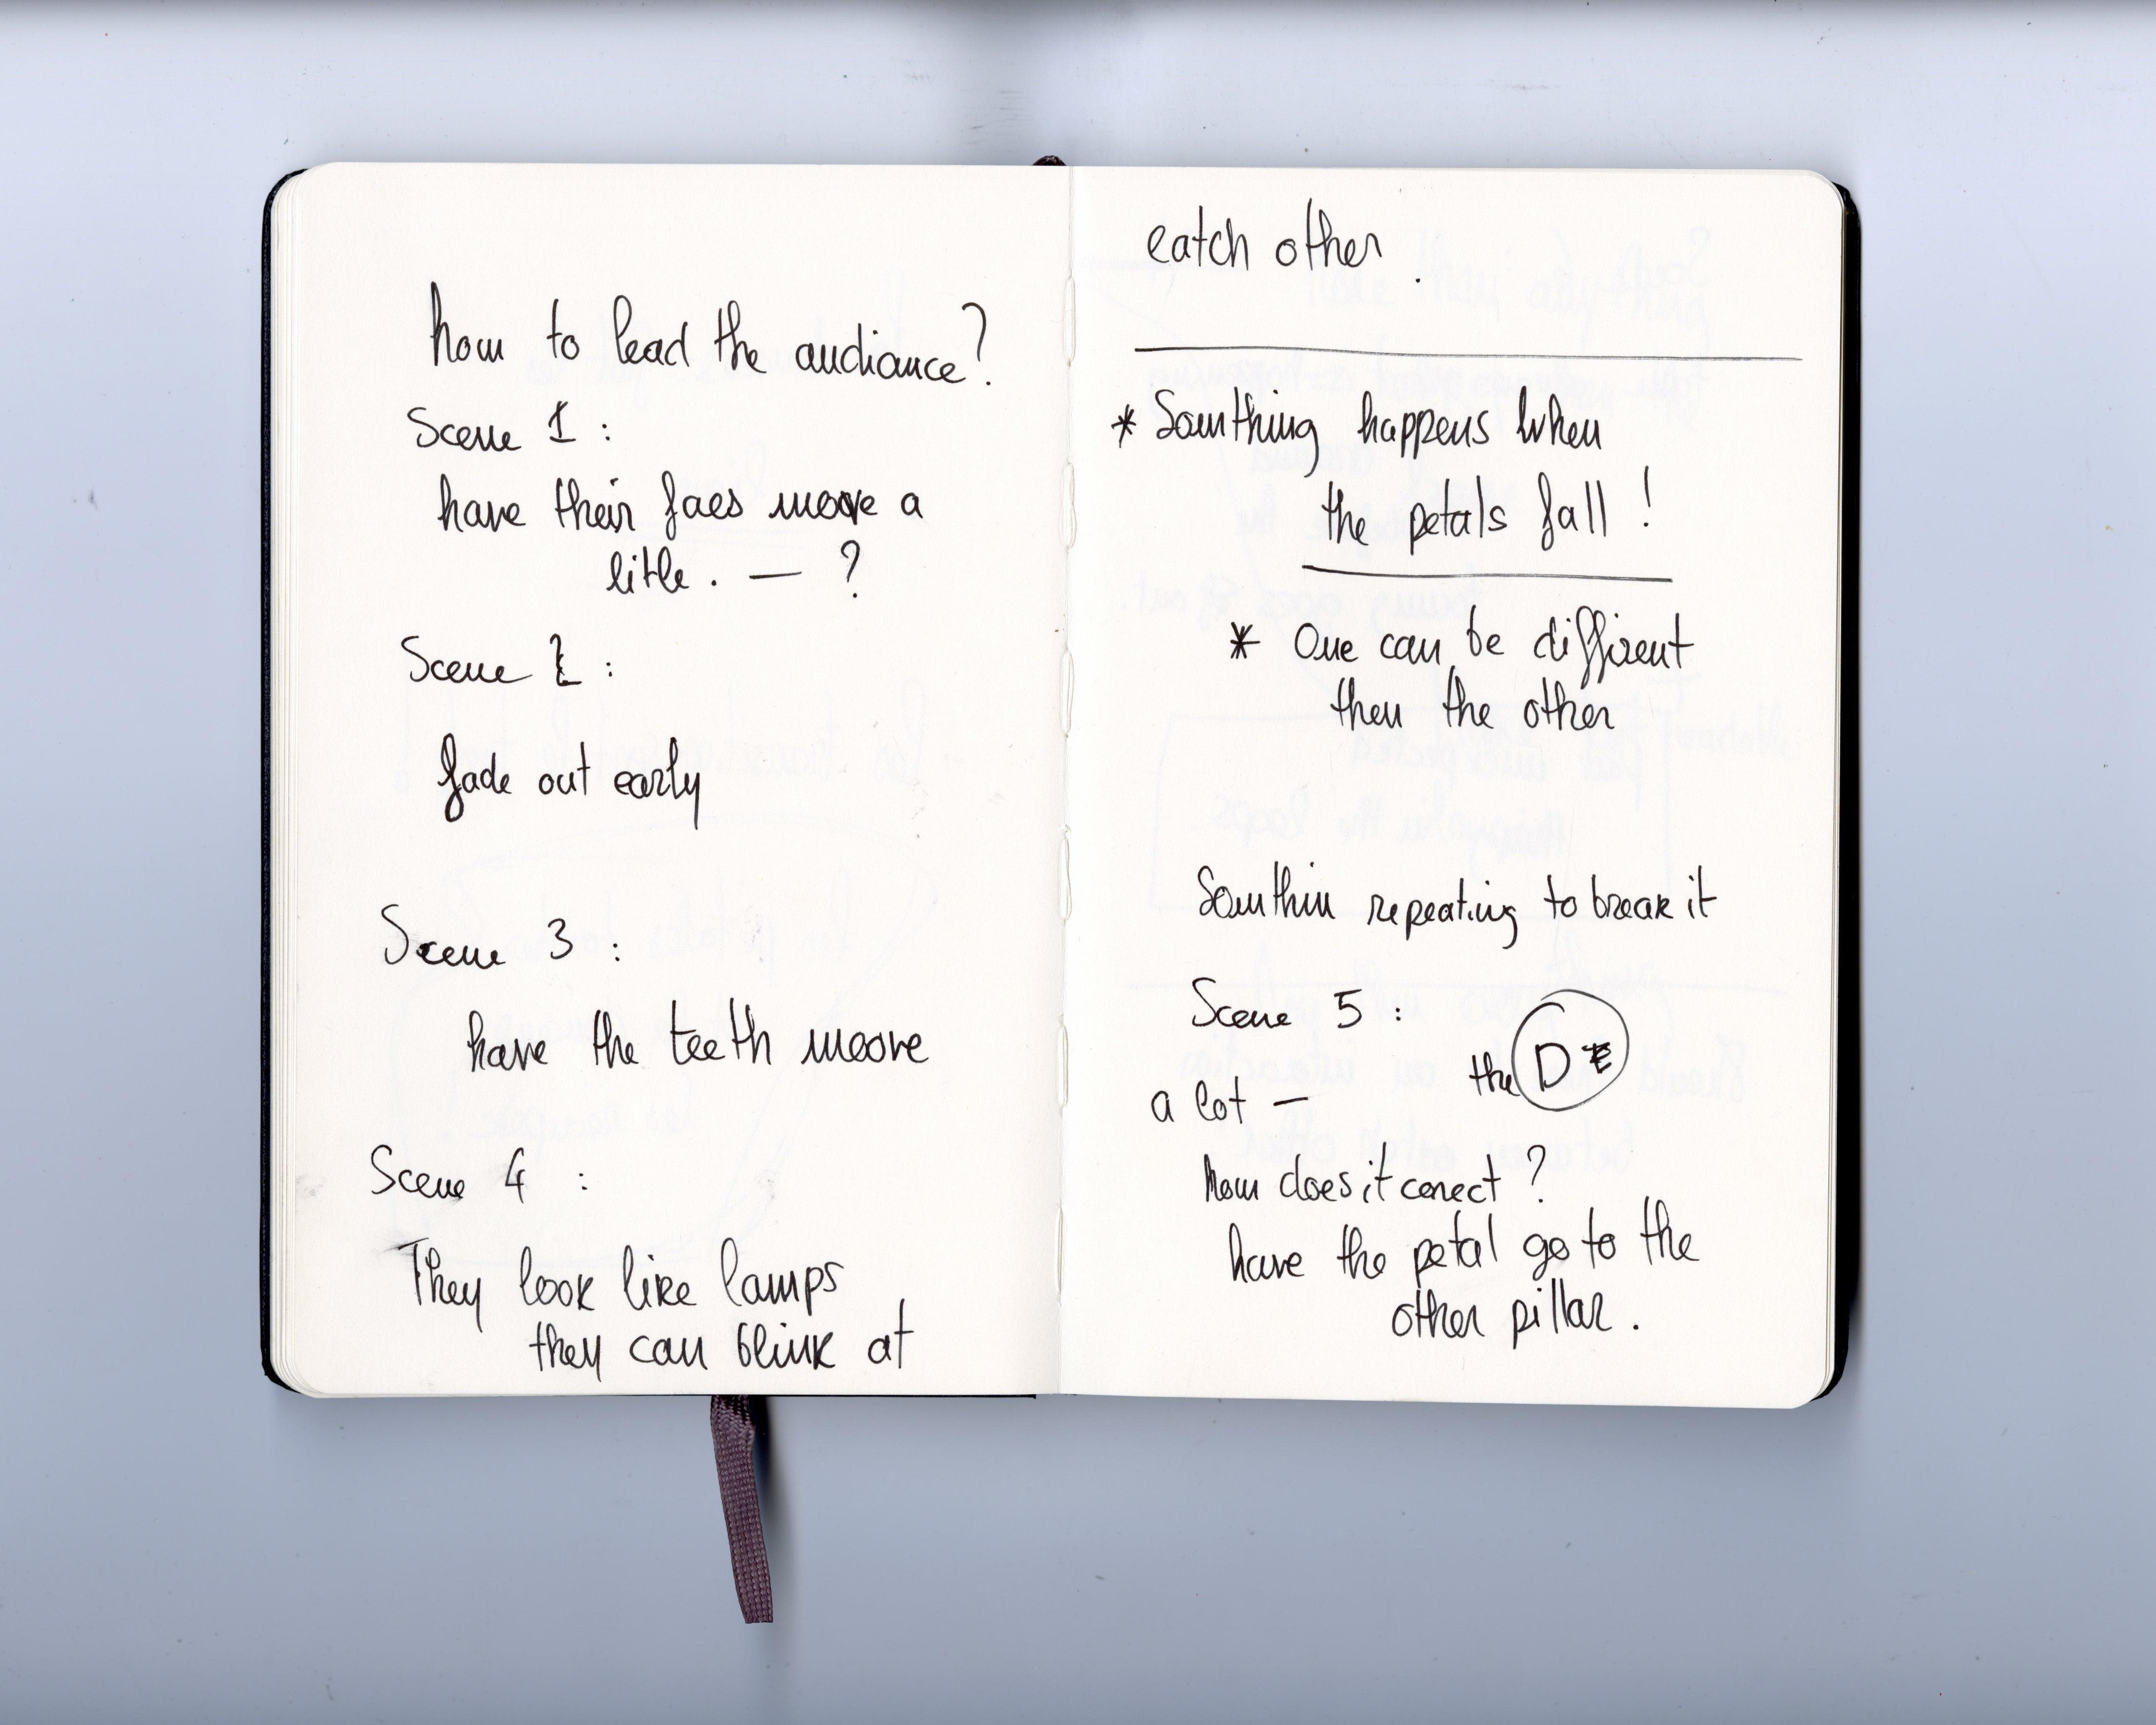 how to lead the audiance?
Scene 1 :
have their faes moove a
litle . — ?
Scene 2 :
fade out early
Scene 3 :
have the teeth moove
Scene 4 :
They look like lamps
they can blink at
eatch other .
* Somthing happens when
the petals fall !
* One can be diffirent
then the other
Somthin repeating to break it
Scene 5 :
the D
a lot —
how does it conect ?
have the petal go to the
other pillar .